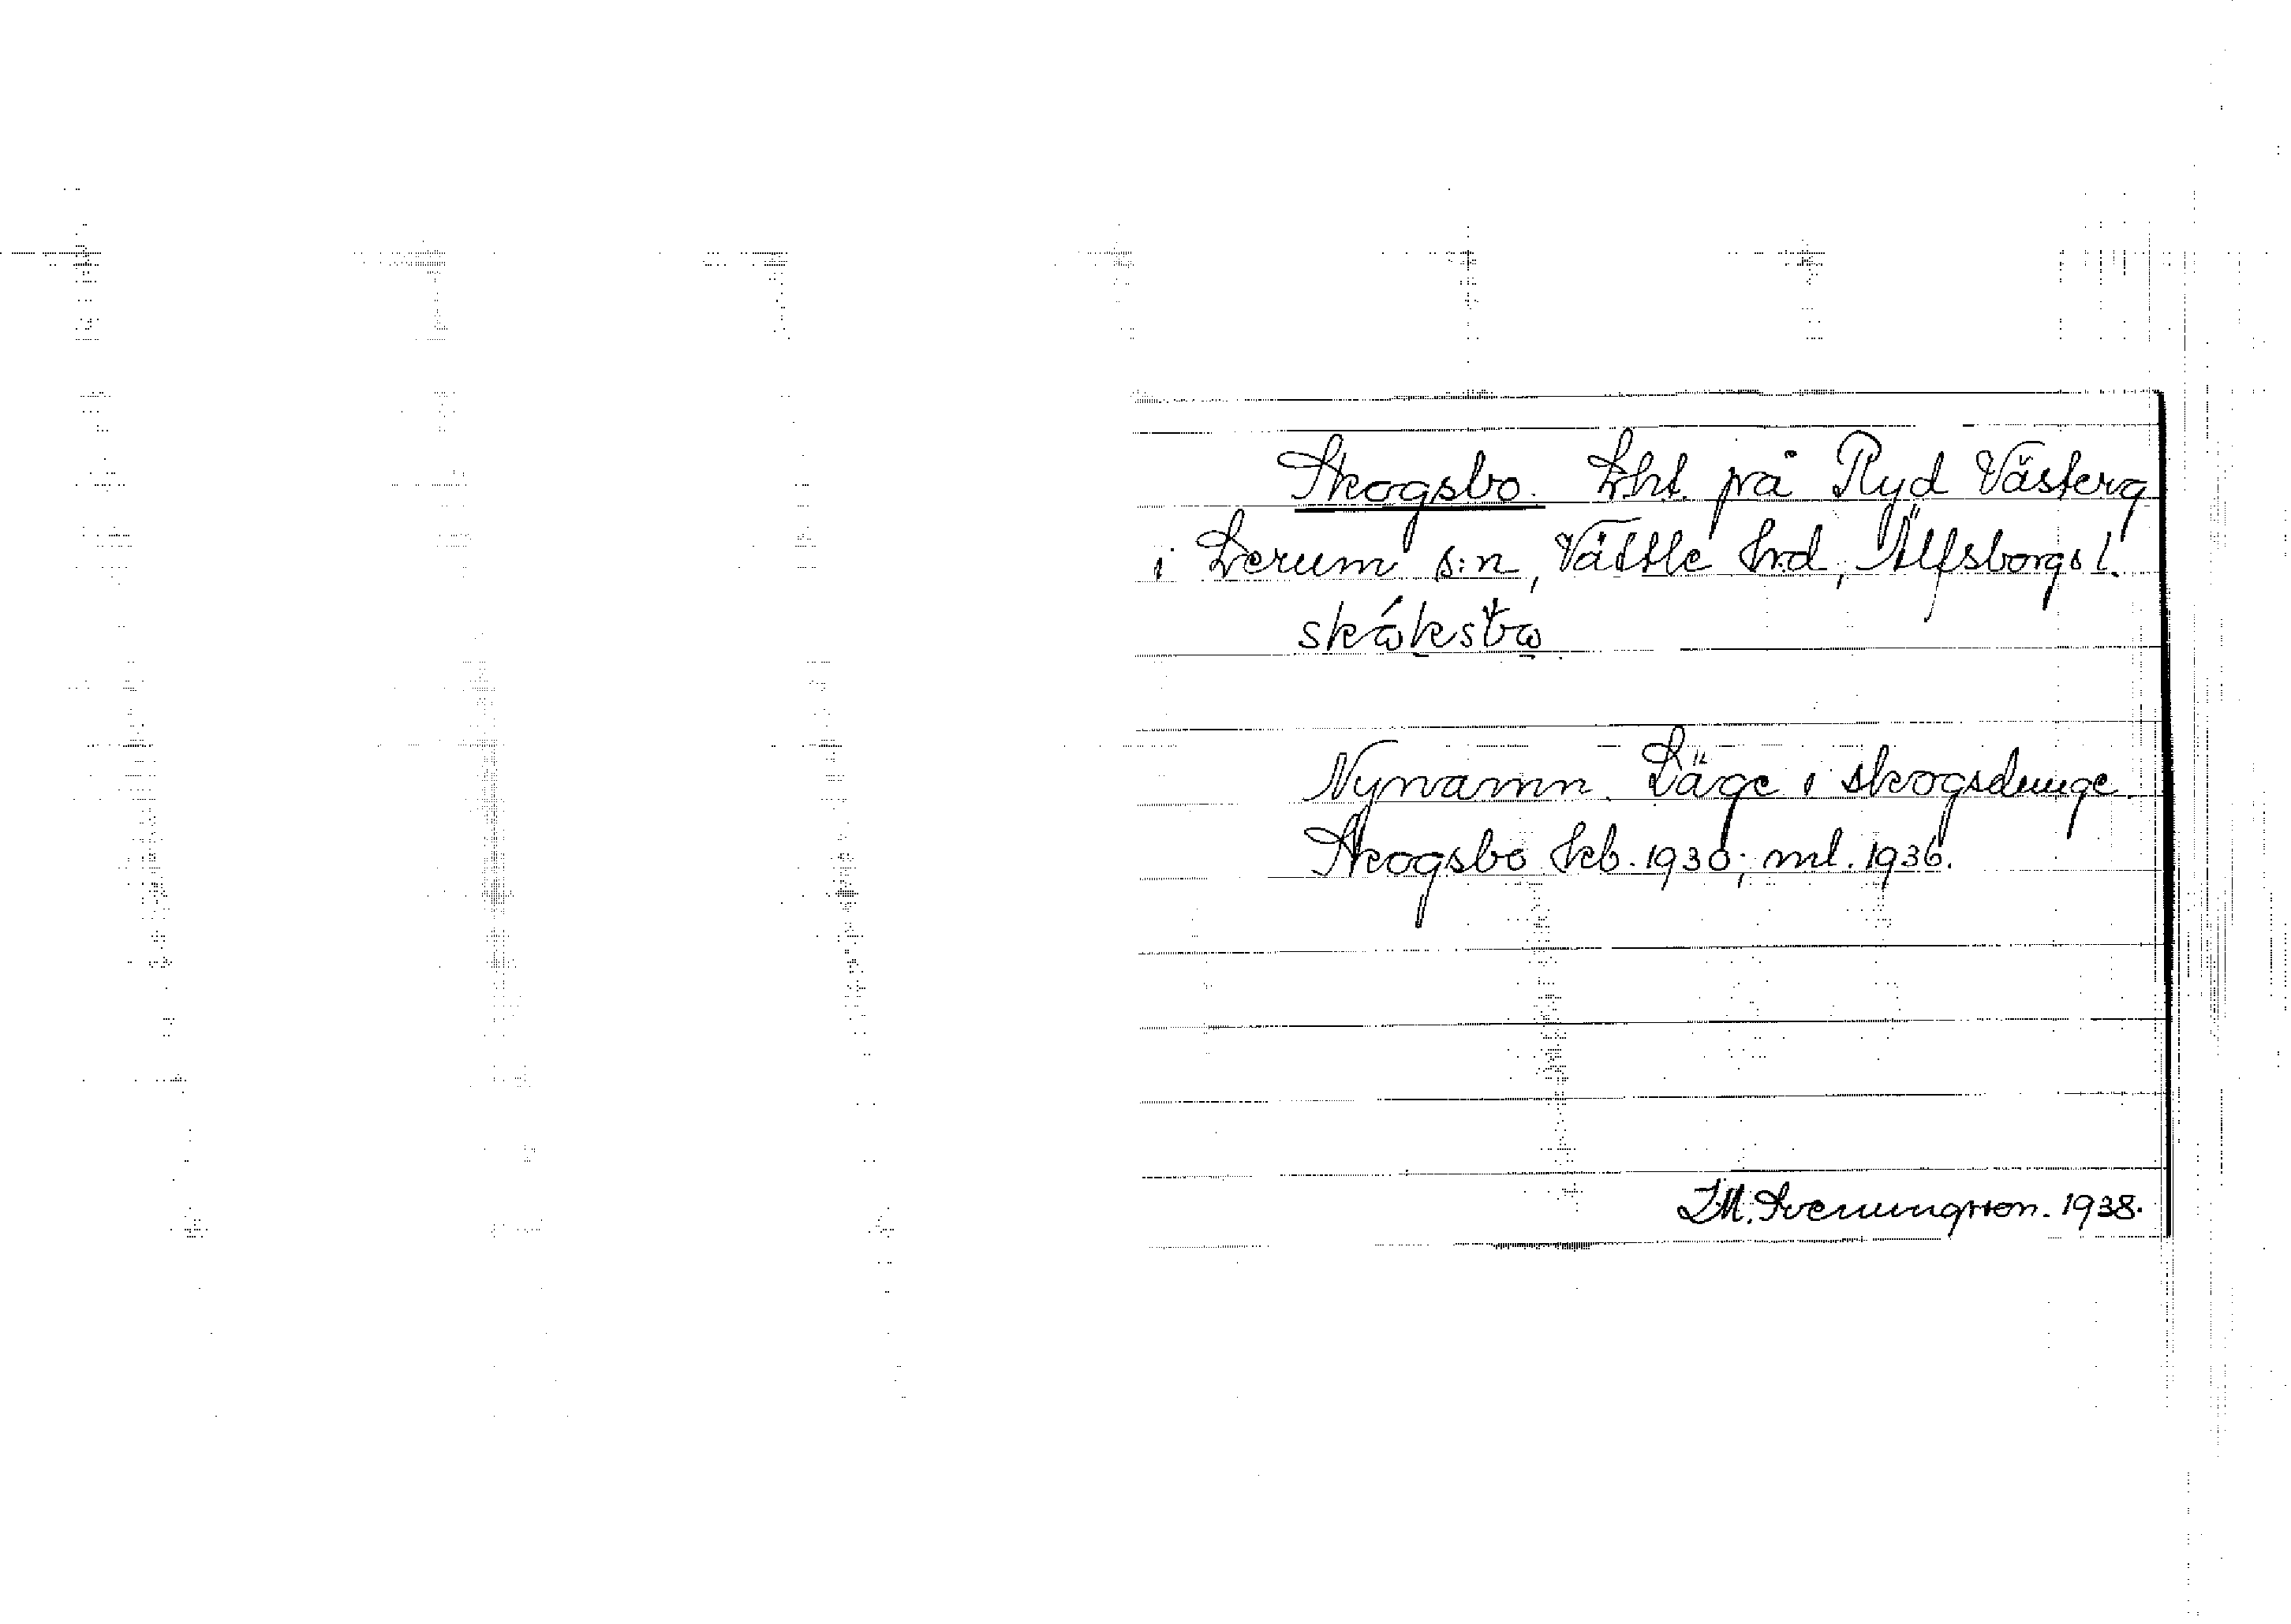 Skogsbo. Lht. på Ryd Västerg
i Lerum s:n, Vättle hrd, Älfsborgs l.
Nynamn. Läge i skogsdunge.
Skogsbo kb. 1930; ml. 1936.
I.M. Svenungsson. 1938.